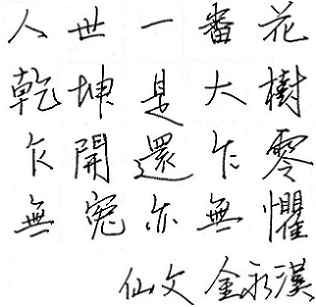 人世一番花
乾坤是大樹
乍開還乍零
無寃亦無懼
仙文 金永漢